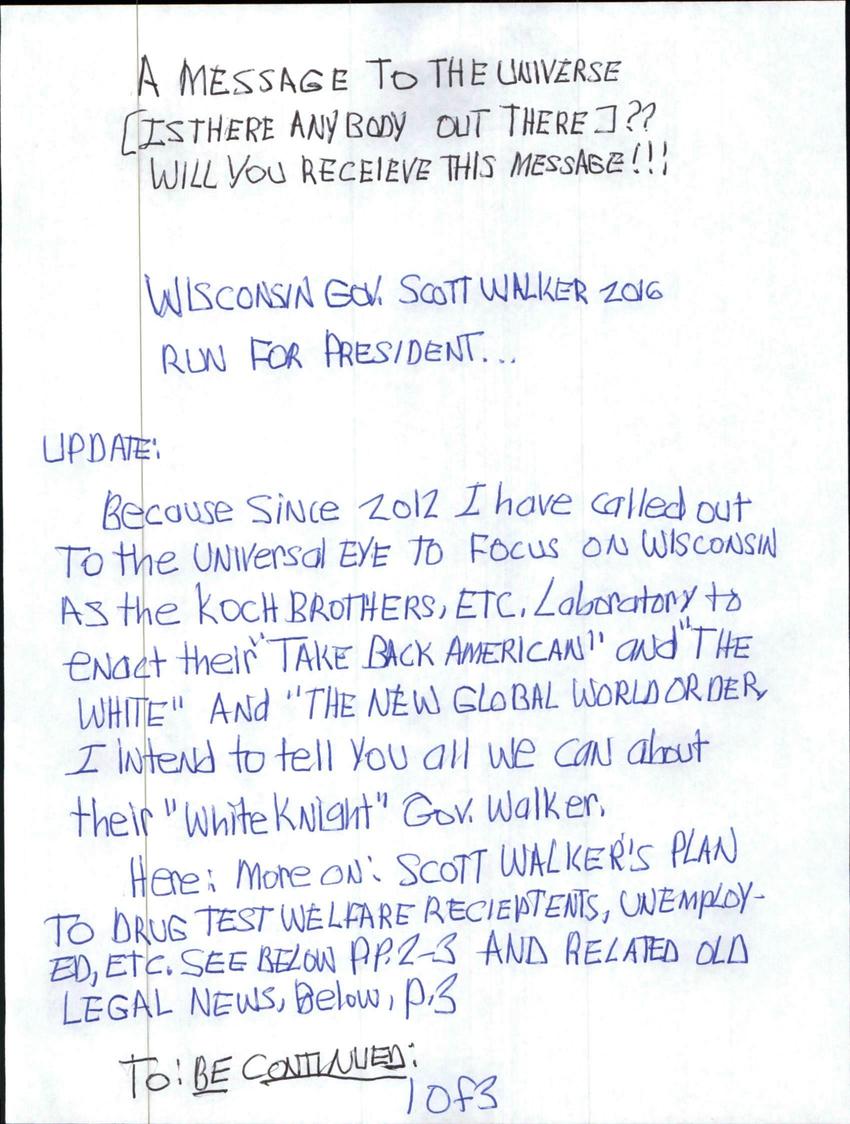 A MESSAGE TO THE UNIVERSE
[IS THERE ANYBODY OUT THERE]??
WILL YOU RECEIEVE THIS MESSAGE!!!
WISCONSIN GOV. SCOTT WALKER 2016
RUN FOR PRESIDENT...
UPDATE:
Because Since 2012 I have called out
To the UNIVersal EYE TO FOCUS ON WISCONSIN
AS the KOCH BROTHERS, ETC. Laboratory to
enact their "TAKE BACK AMERICAN" and "THE
WHITE" ANd "THE NEW GLOBAL WORLD ORDER,
I intend to tell You all we can about
their "White KNight" Gov. Walker.
Here: More ON: SCOTT WALKER'S PLAN
TO DRUG TEST WELFARE RECIEPTENTS, UNEMPLOY-
ED, ETC. SEE BELOW PP. 2-3 AND RELATED OLD
LEGAL NEWS, Below, p.3
TO: BE CONTINUED:
1 OF 3